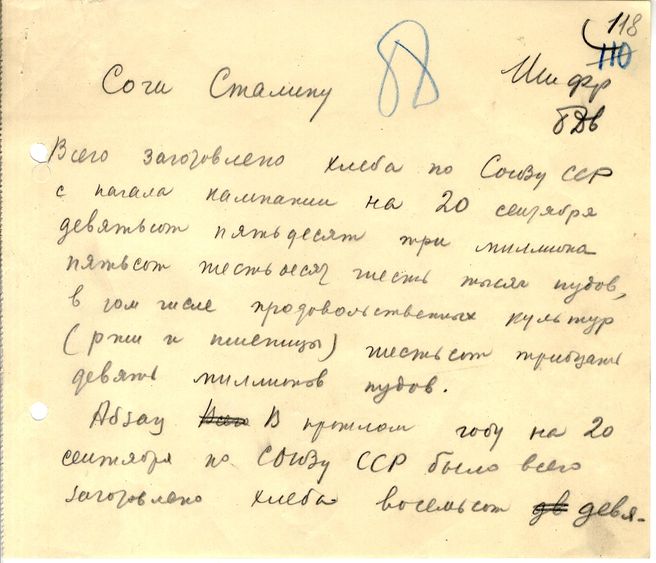 118
110
Сочи Сталину
Шифр
Всего заготовлено хлеба по Союзу ССР
с начала кампании на 20 сентября
девятьсот пятьдесят три миллиона
пятьсот шестьдесят шесть тысяч пудов,
в том числе продовольственных культур
(ржи и пшеницы) шестьсот тридцать
девять миллионов пудов.
Абзац Всего В прошлом году на 20
сентября по СОЮЗу ССР было всего
заготовлено хлеба восемьсот дв девя-